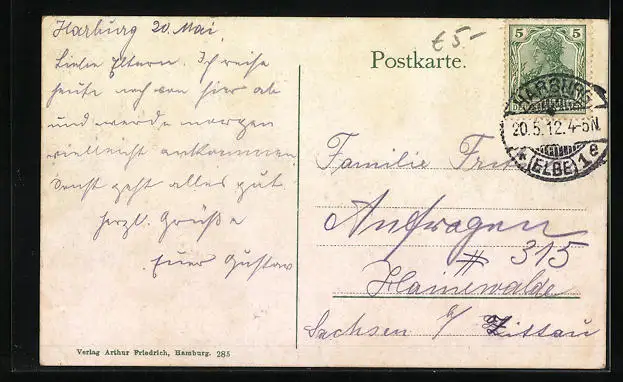 Harburg 20. Mai
Liebe Eltern. Ich reise
heute noch von hier ab
und werde morgen
vielleicht ankommen
Sonst geht alles gut.
herzl. Grüße
Euer Gustav
Verlag Arthur Friedrich, Hamburg. 285
€5-
Postkarte.
5 5
HARBURG
20.5.12.4-5N.
* (ELBE) 1e
Familie
Anfragen
# 315
Hainewalde
Sachsen b/ Zittau